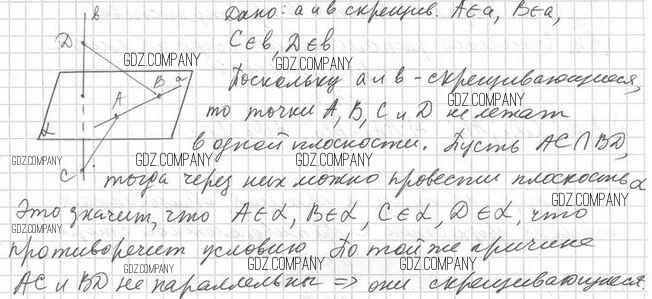 Дано: a и b скрещив. A∈a, B∈a,
C∈b, D∈b.
Поскольку a и b - скрещивающиеся,
то точки A, B, C и D не лежат
в одной плоскости. Пусть AC∩BD,
тогда через них можно провести плоскость α
Это значит, что A∈α, B∈α, C∈α, D∈α, что
противоречит условию. По той же причине
AC и BD не параллельны ⇒ они скрещивающиеся.
b
D
B a
A
α
C
GDZ.COMPANY
GDZ.COMPANY
GDZ.COMPANY
GDZ.COMPANY
GDZ.COMPANY
GDZ.COMPANY
GDZ.COMPANY
GDZ.COMPANY
GDZ.COMPANY
GDZ.COMPANY
GDZ.COMPANY
GDZ.COMPANY
GDZ.COMPANY